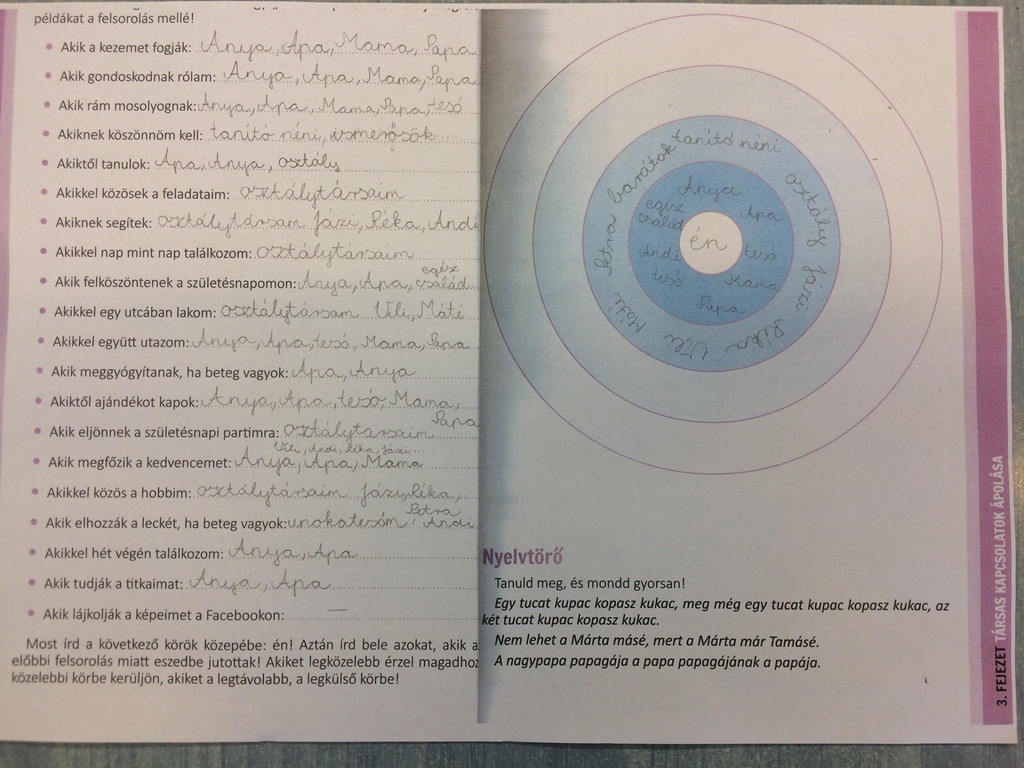 példákat a felsorolás mellé!
• Akik a kezemet fogják: Anya, Apa, Mama, Papa
• Akik gondoskodnak rólam: Anya, Apa, Mama, Papa
• Akik rám mosolyognak: Anya, Apa, Mama, Papa, tesó
• Akiknek köszönnöm kell: tanító néni, ismerősök
• Akiktől tanulok: Apa, Anya, osztály
• Akikkel közösek a feladataim: osztálytársaim
• Akiknek segítek: osztálytársam Jázi, Réka, Andi
• Akikkel nap mint nap találkozom: osztálytársaim
egész
• Akik felköszöntenek a születésnapomon: Anya, Apa, család
• Akikkel egy utcában lakom: osztálytársam Vili, Máté
• Akikkel együtt utazom: Anya, Apa, tesó, Mama, Papa
• Akik meggyógyítanak, ha beteg vagyok: Apa, Anya
• Akiktől ajándékot kapok: Anya, Apa, tesó, Mama,
Papa
• Akik eljönnek a születésnapi partimra: osztálytarsaim
Vili, Andi, Réka, Jázi...
• Akik megfőzik a kedvencemet: Anya, Apa, Mama
• Akikkel közös a hobbim: osztálytársaim Jázi, Réka,
Petra
• Akik elhozzák a leckét, ha beteg vagyok: unokatesóm: Andi
• Akikkel hét végén találkozom: Anya, Apa
• Akik tudják a titkaimat: Anya, Apa
• Akik lájkolják a képeimet a Facebookon: —
Most írd a következő körök közepébe: én! Aztán írd bele azokat, akik a
előbbi felsorolás miatt eszedbe jutottak! Akiket legközelebb érzel magadhoz
közelebbi körbe kerüljön, akiket a legtávolabb, a legkülső körbe!
tanító néni
barátok
osztály
Anya
egész
család
Apa
én
Andi
tesó
tesó
Mama
Papa
Petra
Jázi
Máté
Vili
Réka
Nyelvtörő
Tanuld meg, és mondd gyorsan!
Egy tucat kupac kopasz kukac, meg még egy tucat kupac kopasz kukac, az
két tucat kupac kopasz kukac.
Nem lehet a Márta másé, mert a Márta már Tamásé.
A nagypapa papagája a papa papagájának a papája.
3. FEJEZET TÁRSAS KAPCSOLATOK ÁPOLÁSA